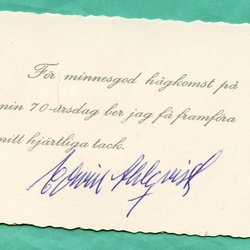 För minnesgod hågkomst på
min 70-årsdag ber jag få framföra
mitt hjärtliga tack.
Edwin Ahlqvist